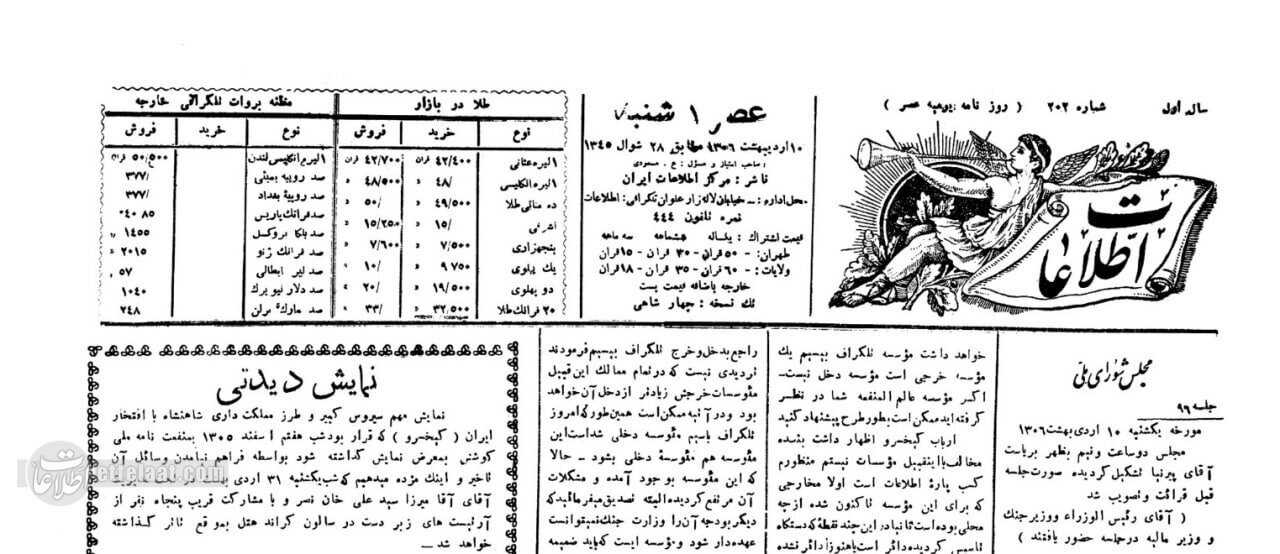 سال اول شماره ۲۰۲ ( روز نامه یومیه عصر )
اطلاعات
عصر ۱ شنبه
۱۰ اردیبهشت ۱۳۰۶ مطابق ۲۸ شوال ۱۳۴۵
صاحب امتیاز و مسئول : ع . مسعودی
ناشر : مرکز اطلاعات ایران
محل اداره : ــ خیابان لاله زار عنوان تلگرافی : اطلاعات
نمره تلفون ۴۴۴
قیمت اشتراک : یکساله ششماهه سه ماهه
طهران : - ۵۰ قران - ۳۰ قران - ۱۵ قران
ولایات : - ۶۰ قران - ۳۵ قران - ۱۸ قران
خارجه باضافه قیمت پست
تک نسخه : چهار شاهی
طلا در بازار
نوع خرید فروش
۱ لیره عثمانی ۴۲/۴۰۰ قران ۴۲/۷۰۰ قران
۱ لیره انگلیسی ۴۸/ ۴۸/۵۰۰
ده مناتی طلا ۴۹/۵۰۰ ۵۰/
اشرفی ۱۵/ ۱۵/۲۵۰
پنجهزاری ۷/۵۰۰ ۷/۶۰۰
یک پهلوی ۹ ۷۵۰ ۱۰/
دو پهلوی ۱۹/۵۰۰ ۲۰/
۲۰ فرانک طلا ۳۲/۵۰۰ ۳۳/
مظنه بروات تلگرافی خارجه
نوع خرید فروش
۱ لیره انگلیسی لندن ۵۰/۵۰۰ قران
صد روپیه بمبئی ۳۷۷/
صد روپیهٔ بغداد ۳۷۷/
صد فرانک پاریس
صد بلگا بروکسل ۱۴۵۵
صد فرانک ژنو ۲۰۱۵
صد لیر ایطالی ۵۷
صد دلار نیویرک ۱۰۴۰
صد مارک برلن ۲۴۸
مجلس شورای ملی
جلسه ۹۶
مورخه یکشنبه ۱۰ اردی بهشت ۱۳۰۶
مجلس دو ساعت ونیم بظهر بریاست
آقای پیرنیا تشکیل گردیده صورت جلسه
قبل قرائت وتصویب شد
( آقای رئیس الوزراء ووزیر جنگ
و وزیر مالیه درجلسه حضور یافتند )
خواهد داشت مؤسسه تلگراف بیسیم یک
مؤسسه خرجی است مؤسسه دخل نیست-
اگر مؤسسه عالم المنفعه شما در نظر
گرفته اید ممکن است بطور طرح پیشنهاد کنید
ارباب کیخسرو اظهار داشت بنده
مخالف با اینقبیل مؤسسات نیستم منظورم
کسب پارهٔ اطلاعات است اولا مخارجی
که برای این مؤسسه تاکنون شده ازچه
محلی بوده است ثانیا در این چند نقطه که دستگاه
تاسیس گردیده دائر است یا هنوز دائر نشده
راجع بدخل وخرج تلگراف بیسیم فرمودند
تردیدی نیست که در تمام ممالک این قبیل
مؤسسات خرجش زیادتر از دخل آن خواهد
بود ودر آتیه ممکن است همین طور که امروز
تلگراف باسیم مؤسسه دخلی شداست این
مؤسسه هم مؤسسهٔ دخلی بشود - حالا
که این مؤسسه بوجود آمده و مشکلات
آن مرتفع گردیده البته تصدیق میفرمائید که
دیگر بودجه آن را وزارت جنگ نمیتوانست
عهده دار شود و مؤسسه ایست که باید ضمیمه
نمایش دیدنی
نمایش مهم سیروس کبیر و طرز مملکت داری شاهنشاه با افتخار
ایران ( کیخسرو ) که قرار بود شب هفتم اسفند ۱۳۰۵ بمنفعت نامه ملی
کوشش بمعرض نمایش گذاشته شود بواسطه فراهم نیامدن وسائل آن
تاخیر و اینک مژده میدهیم که شب یکشنبه ۳۱ اردی بهشت
آقای آقا میرزا سید علی خان نصر و با مشارکت قریب پنجاه نفر از
آرتیست های زبر دست در سالون گراند هتل بموقع تاتر گذاشته
خواهد شد ــ
اطلاعات
ettelaat.com